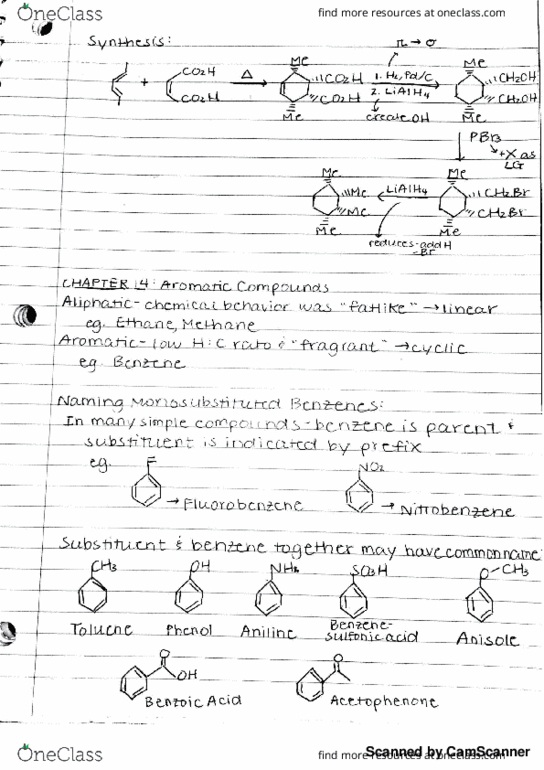 OneClass
find more resources at oneclass.com
Synthesis:
π → σ
Me Me
+ CO2H CO2H Δ CO2H CO2H 1. H2, Pd/C 2. LiAlH4 CH2OH CH2OH
Me create OH Me
PBr3
+X as LG
Me Me
Me Me LiAlH4 CH2Br CH2Br
Me Me
reduces-add H
-Br
CHAPTER 14: Aromatic Compounds
Aliphatic- chemical behavior was "fatlike" → linear
eg. Ethane, Methane
Aromatic- low H:C rato & "fragrant" → cyclic
eg. Benzene
Naming Monosubstituted Benzenes:
In many simple compounds- benzene is parent &
substituent is indicated by prefix
eg. F NO2
→ Fluorobenzene → Nitrobenzene
Substituent & benzene together may have common name
CH3 OH NH2 SO3H O-CH3
Toluene Phenol Aniline Benzene-sulfonic acid Anisole
O OH O
Benzoic Acid Acetophenone
OneClass
find more resources at oneclass.com
Scanned by CamScanner